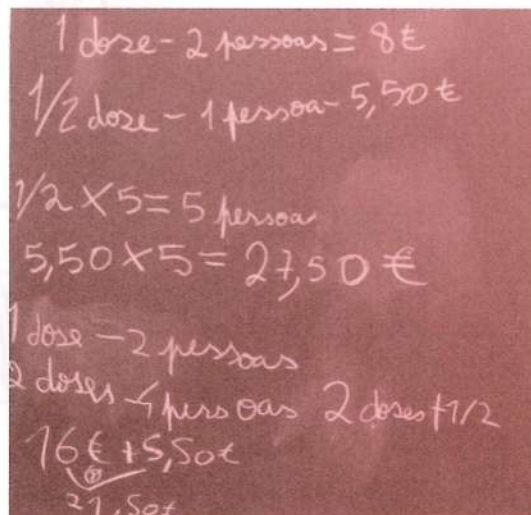 1 dose - 2 pessoas = 8€
1/2 dose - 1 pessoa - 5,50 €
1/2 X 5 = 5 pessoa
5,50 X 5 = 27,50 €
1 dose - 2 pessoas
2 doses - 4 pessoas 2 doses + 1/2
16 € + 5,50€
21,50€